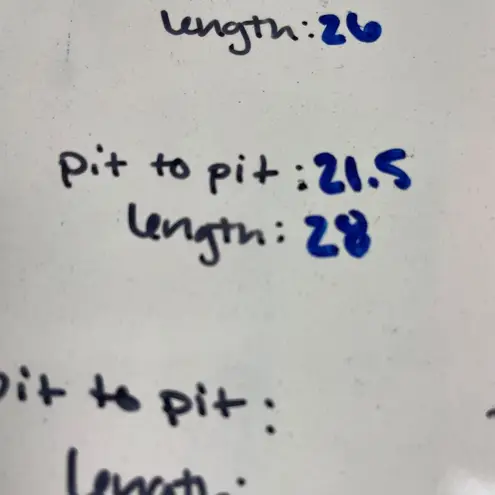 length: 26
pit to pit: 21.5
length: 28
pit to pit:
length: